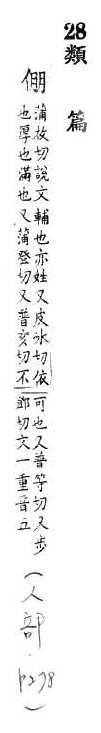 28類
篇
倗 蒲枚切說文輔也亦姓又皮氷切依
也厚也滿也又蒲登切又普亥切不
可也又普等切又步
鄧切文一重音五
(人部.p298)